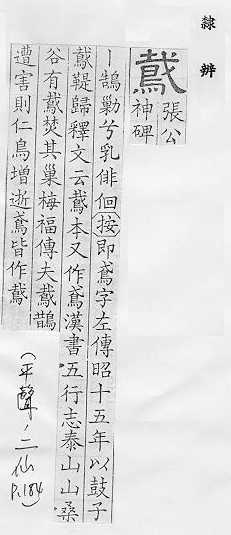 隸辨
䳒
張公
神碑
丨鵠勦兮乳俳佪按即鳶字左傳昭十五年以鼓子
䳒鞮歸釋文云䳒本又作鳶漢書五行志泰山山桑
谷有䳒焚其巢梅福傳夫䳒鵲
遭害則仁鳥增逝鳶皆作䳒
(平聲、二仙 P.184)